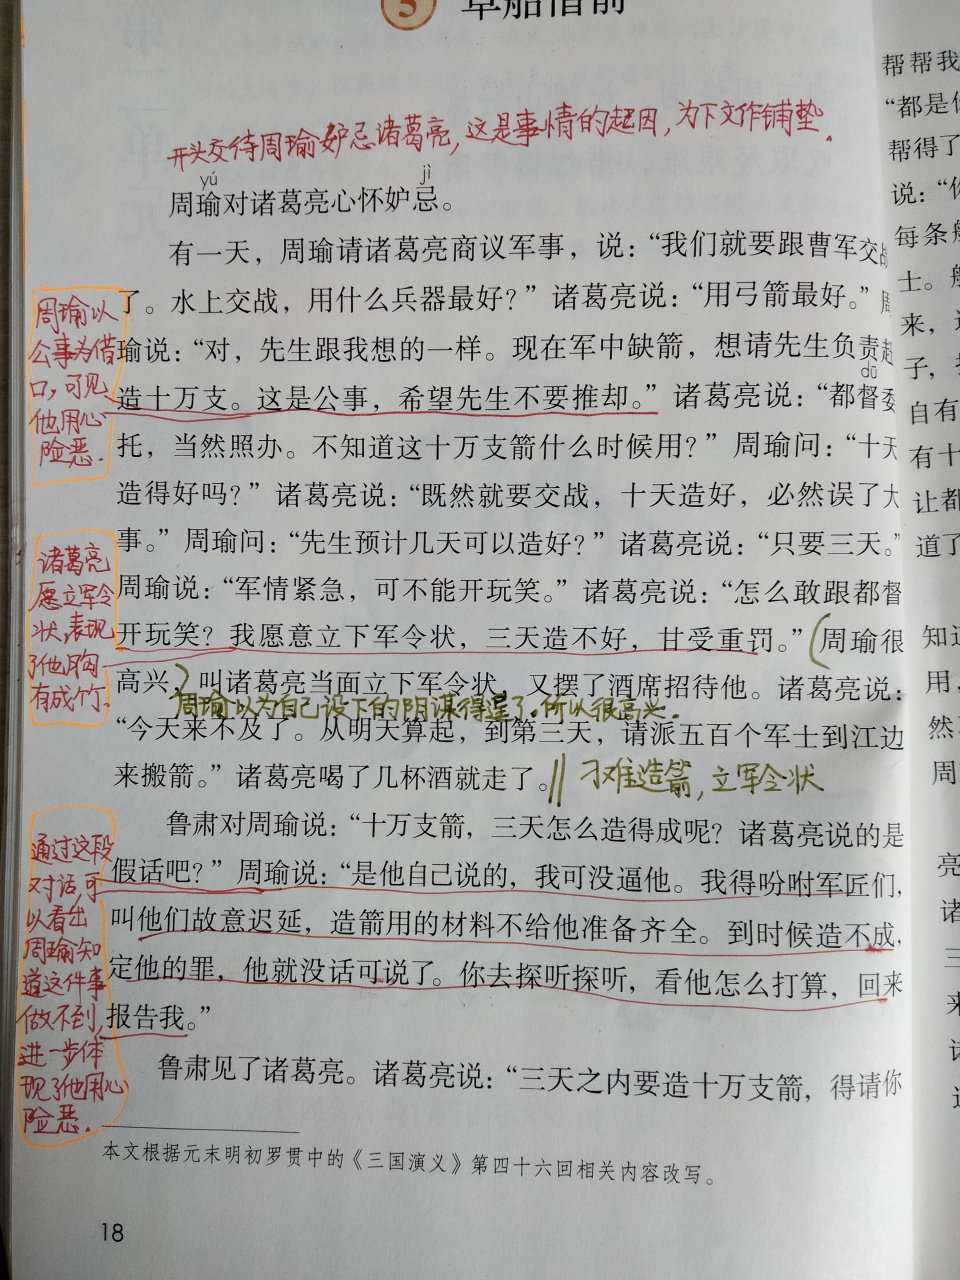 5 草船借箭
开头交待周瑜妒忌诸葛亮，这是事情的起因，为下文作铺垫．
yú jì
周瑜对诸葛亮心怀妒忌。
有一天，周瑜请诸葛亮商议军事，说：“我们就要跟曹军交战
了。水上交战，用什么兵器最好？”诸葛亮说：“用弓箭最好。”周
瑜说：“对，先生跟我想的一样。现在军中缺箭，想请先生负责赶
dū
造十万支。这是公事，希望先生不要推却。”诸葛亮说：“都督委
托，当然照办。不知道这十万支箭什么时候用？”周瑜问：“十天
造得好吗？”诸葛亮说：“既然就要交战，十天造好，必然误了大
事。”周瑜问：“先生预计几天可以造好？”诸葛亮说：“只要三天。”
周瑜说：“军情紧急，可不能开玩笑。”诸葛亮说：“怎么敢跟都督
开玩笑？我愿意立下军令状，三天造不好，甘受重罚。”（周瑜很
高兴，）叫诸葛亮当面立下军令状，又摆了酒席招待他。诸葛亮说：
周瑜以为自己设下的阴谋得逞了，所以很高兴．
“今天来不及了。从明天算起，到第三天，请派五百个军士到江边
来搬箭。”诸葛亮喝了几杯酒就走了。‖ 刁难造箭，立军令状
鲁肃对周瑜说：“十万支箭，三天怎么造得成呢？诸葛亮说的是
假话吧？”周瑜说：“是他自己说的，我可没逼他。我得吩咐军匠们，
叫他们故意迟延，造箭用的材料不给他准备齐全。到时候造不成，
定他的罪，他就没话可说了。你去探听探听，看他怎么打算，回来
报告我。”
鲁肃见了诸葛亮。诸葛亮说：“三天之内要造十万支箭，得请你
周瑜以
公事为借
口，可见
他用心
险恶．
诸葛亮
愿立军令
状，表现
了他胸
有成竹．
通过这段
对话，可
以看出
周瑜知
道这件事
做不到，
进一步体
现了他用心
险恶．
本文根据元末明初罗贯中的《三国演义》第四十六回相关内容改写。
18
帮帮我
“都是你
帮得了
说：“你
每条船
士。
来，
子，
自有
有十
让都
道了
知道
用，
然
周
亮
诸
三
来